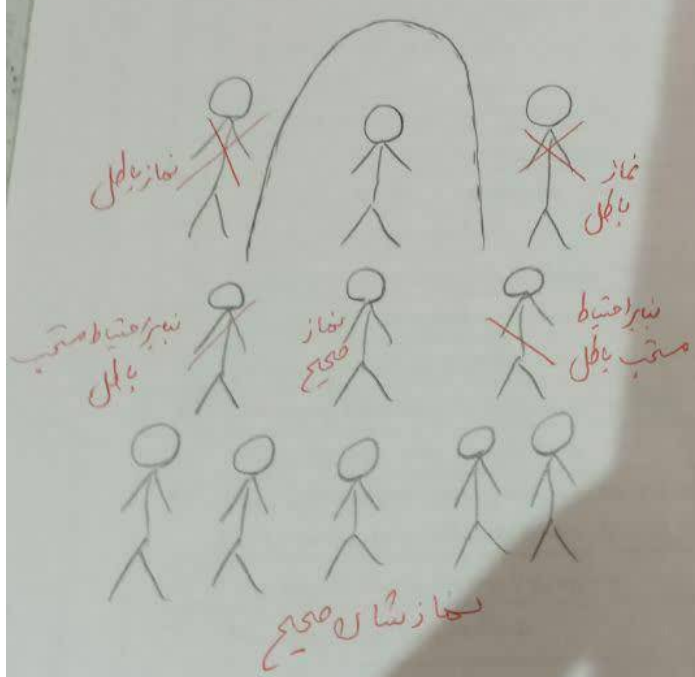 نماز باطل
نماز
باطل
بنابر احتیاط
مستحب باطل
نماز
صحیح
بنابر احتیاط مستحب
باطل
نمازشان صحیح